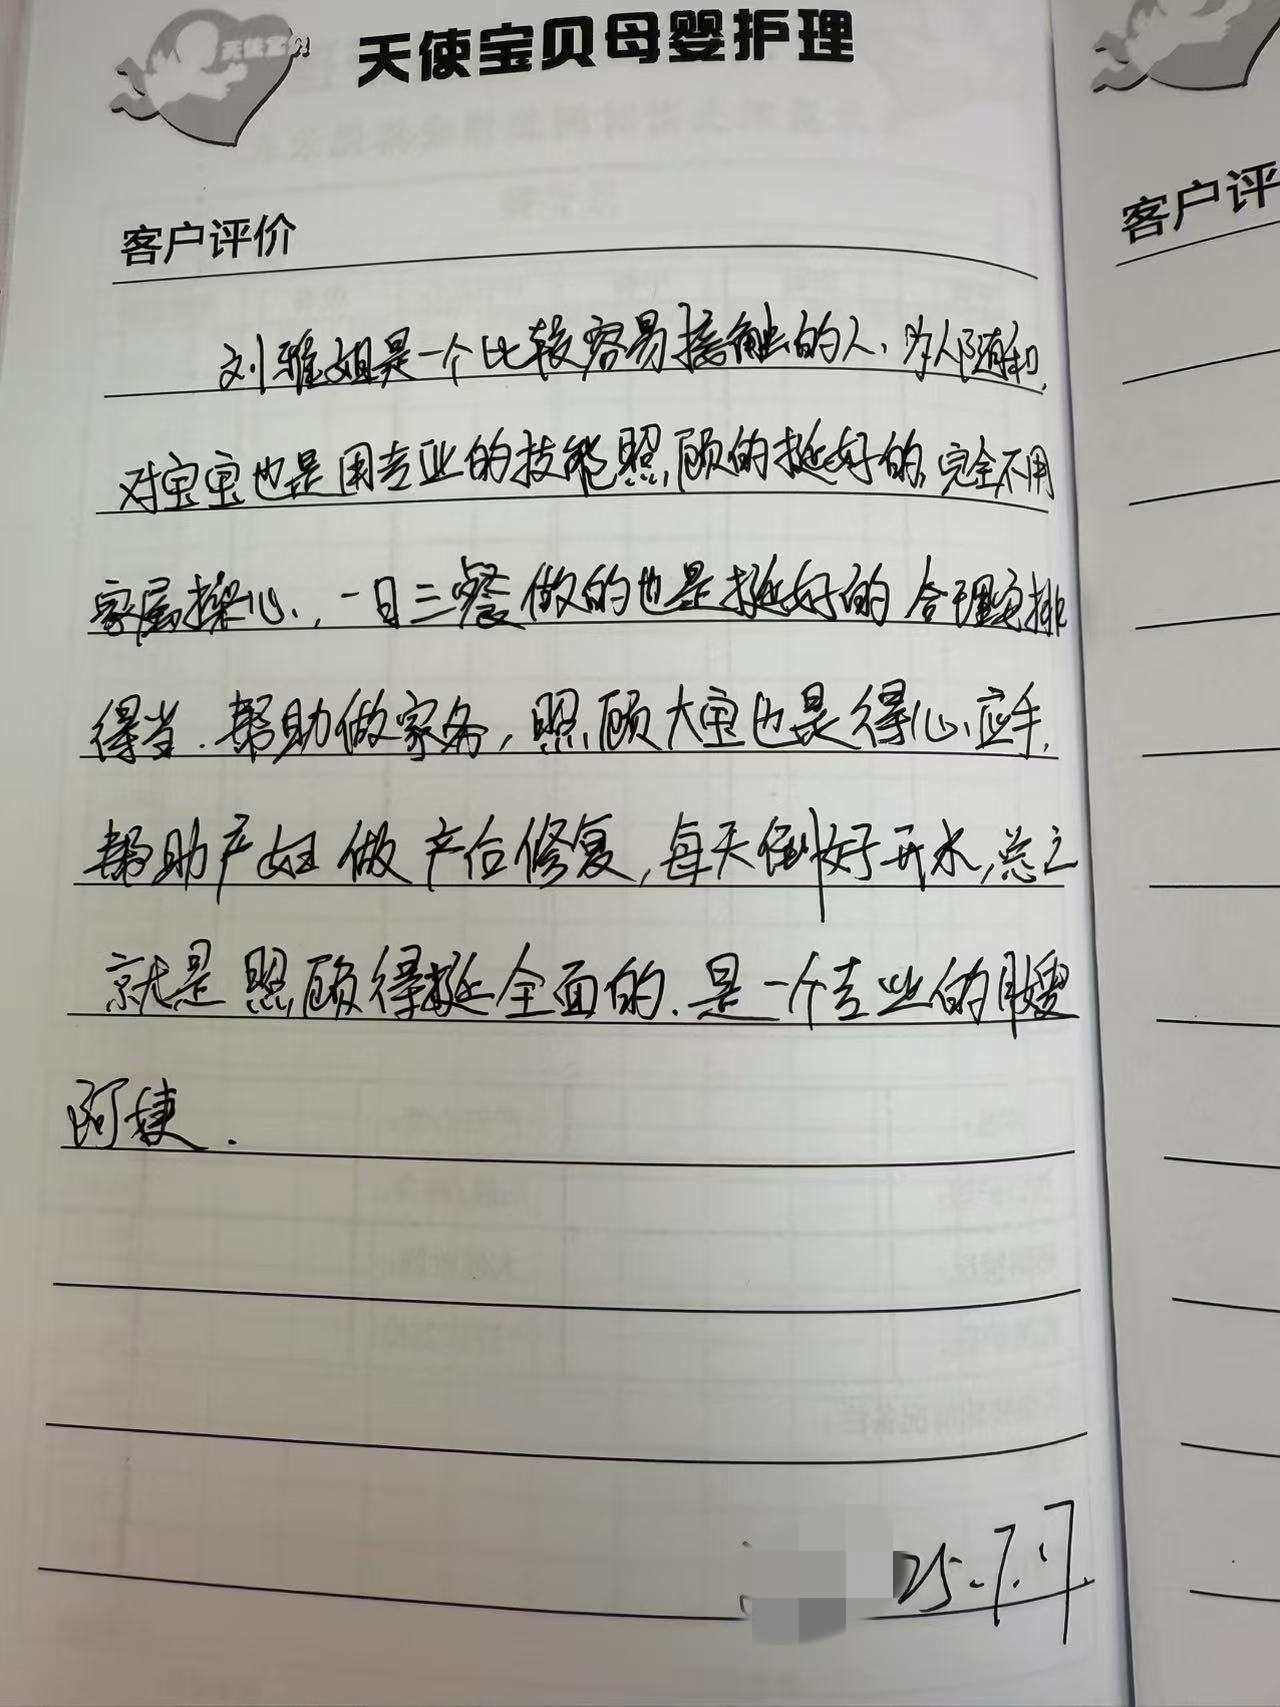 天使宝贝
天使宝贝母婴护理
客户评价
刘雅姐是一个比较容易接触的人、为人随和,
对宝宝也是用专业的技能照顾的挺好的,完全不用
家属操心,一日三餐做的也是挺好的 合理安排
得当.帮助做家务,照顾大宝也是得心应手,
帮助产妇做产后修复,每天倒好开水,总之
就是照顾得挺全面的.是一个专业的月嫂
阿姨.
25.7.17
客户评